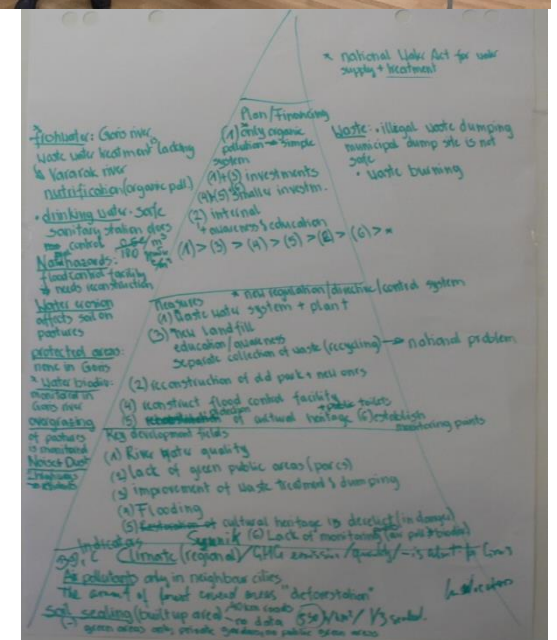 * national Water Act for water
supply + treatment
Plan/Financing
(1) only organic
pollution → simple
system
(1)+(3) investments
(4)+(5) smaller investm.
(2) internal
awareness & education
(1) > (3) > (4) > (5) > (2) > (6) > *
Waste: • illegal waste dumping
municipal dump site is not
safe
• waste burning
Freshwater: Goris river
waste water treatment is lacking
Vararak river
nutrification (organic poll)
• drinking water: safe
sanitary station does
control
180
Nat. hazards:
flood control facility
needs reconstruction
Water erosion
affects soil on
pastures
protected areas:
none in Goris
* Water biodiv.:
monitored in
Goris river
overgrazing
of pastures
is monitored
Noise + Dust
Measures * new regulation/directive/control system
(1) Waste water system + plant
(3) new landfill
education/awareness
separate collection of waste (recycling) → national problem
(2) reconstruction of old parks + new ones
(4) reconstruct flood control facility
+ public toilets
(5) of cultural heritage (6) establish
monitoring points
Key development fields
(1) River water quality
(2) Lack of green public areas (parcs)
(3) improvement of waste treatment & dumping
(4) Flooding
(5) cultural heritage is derelict (in danger)
Syunik (6) Lack of monitoring
Indicators
Climate (regional) / GHG emission / quality
Air pollutants only in neighbour cities
The amount of forest covered areas "deforestation"
Indicators
soil sealing (built up area) no data 1/3 sealed.
green areas only private gardens, no public green areas